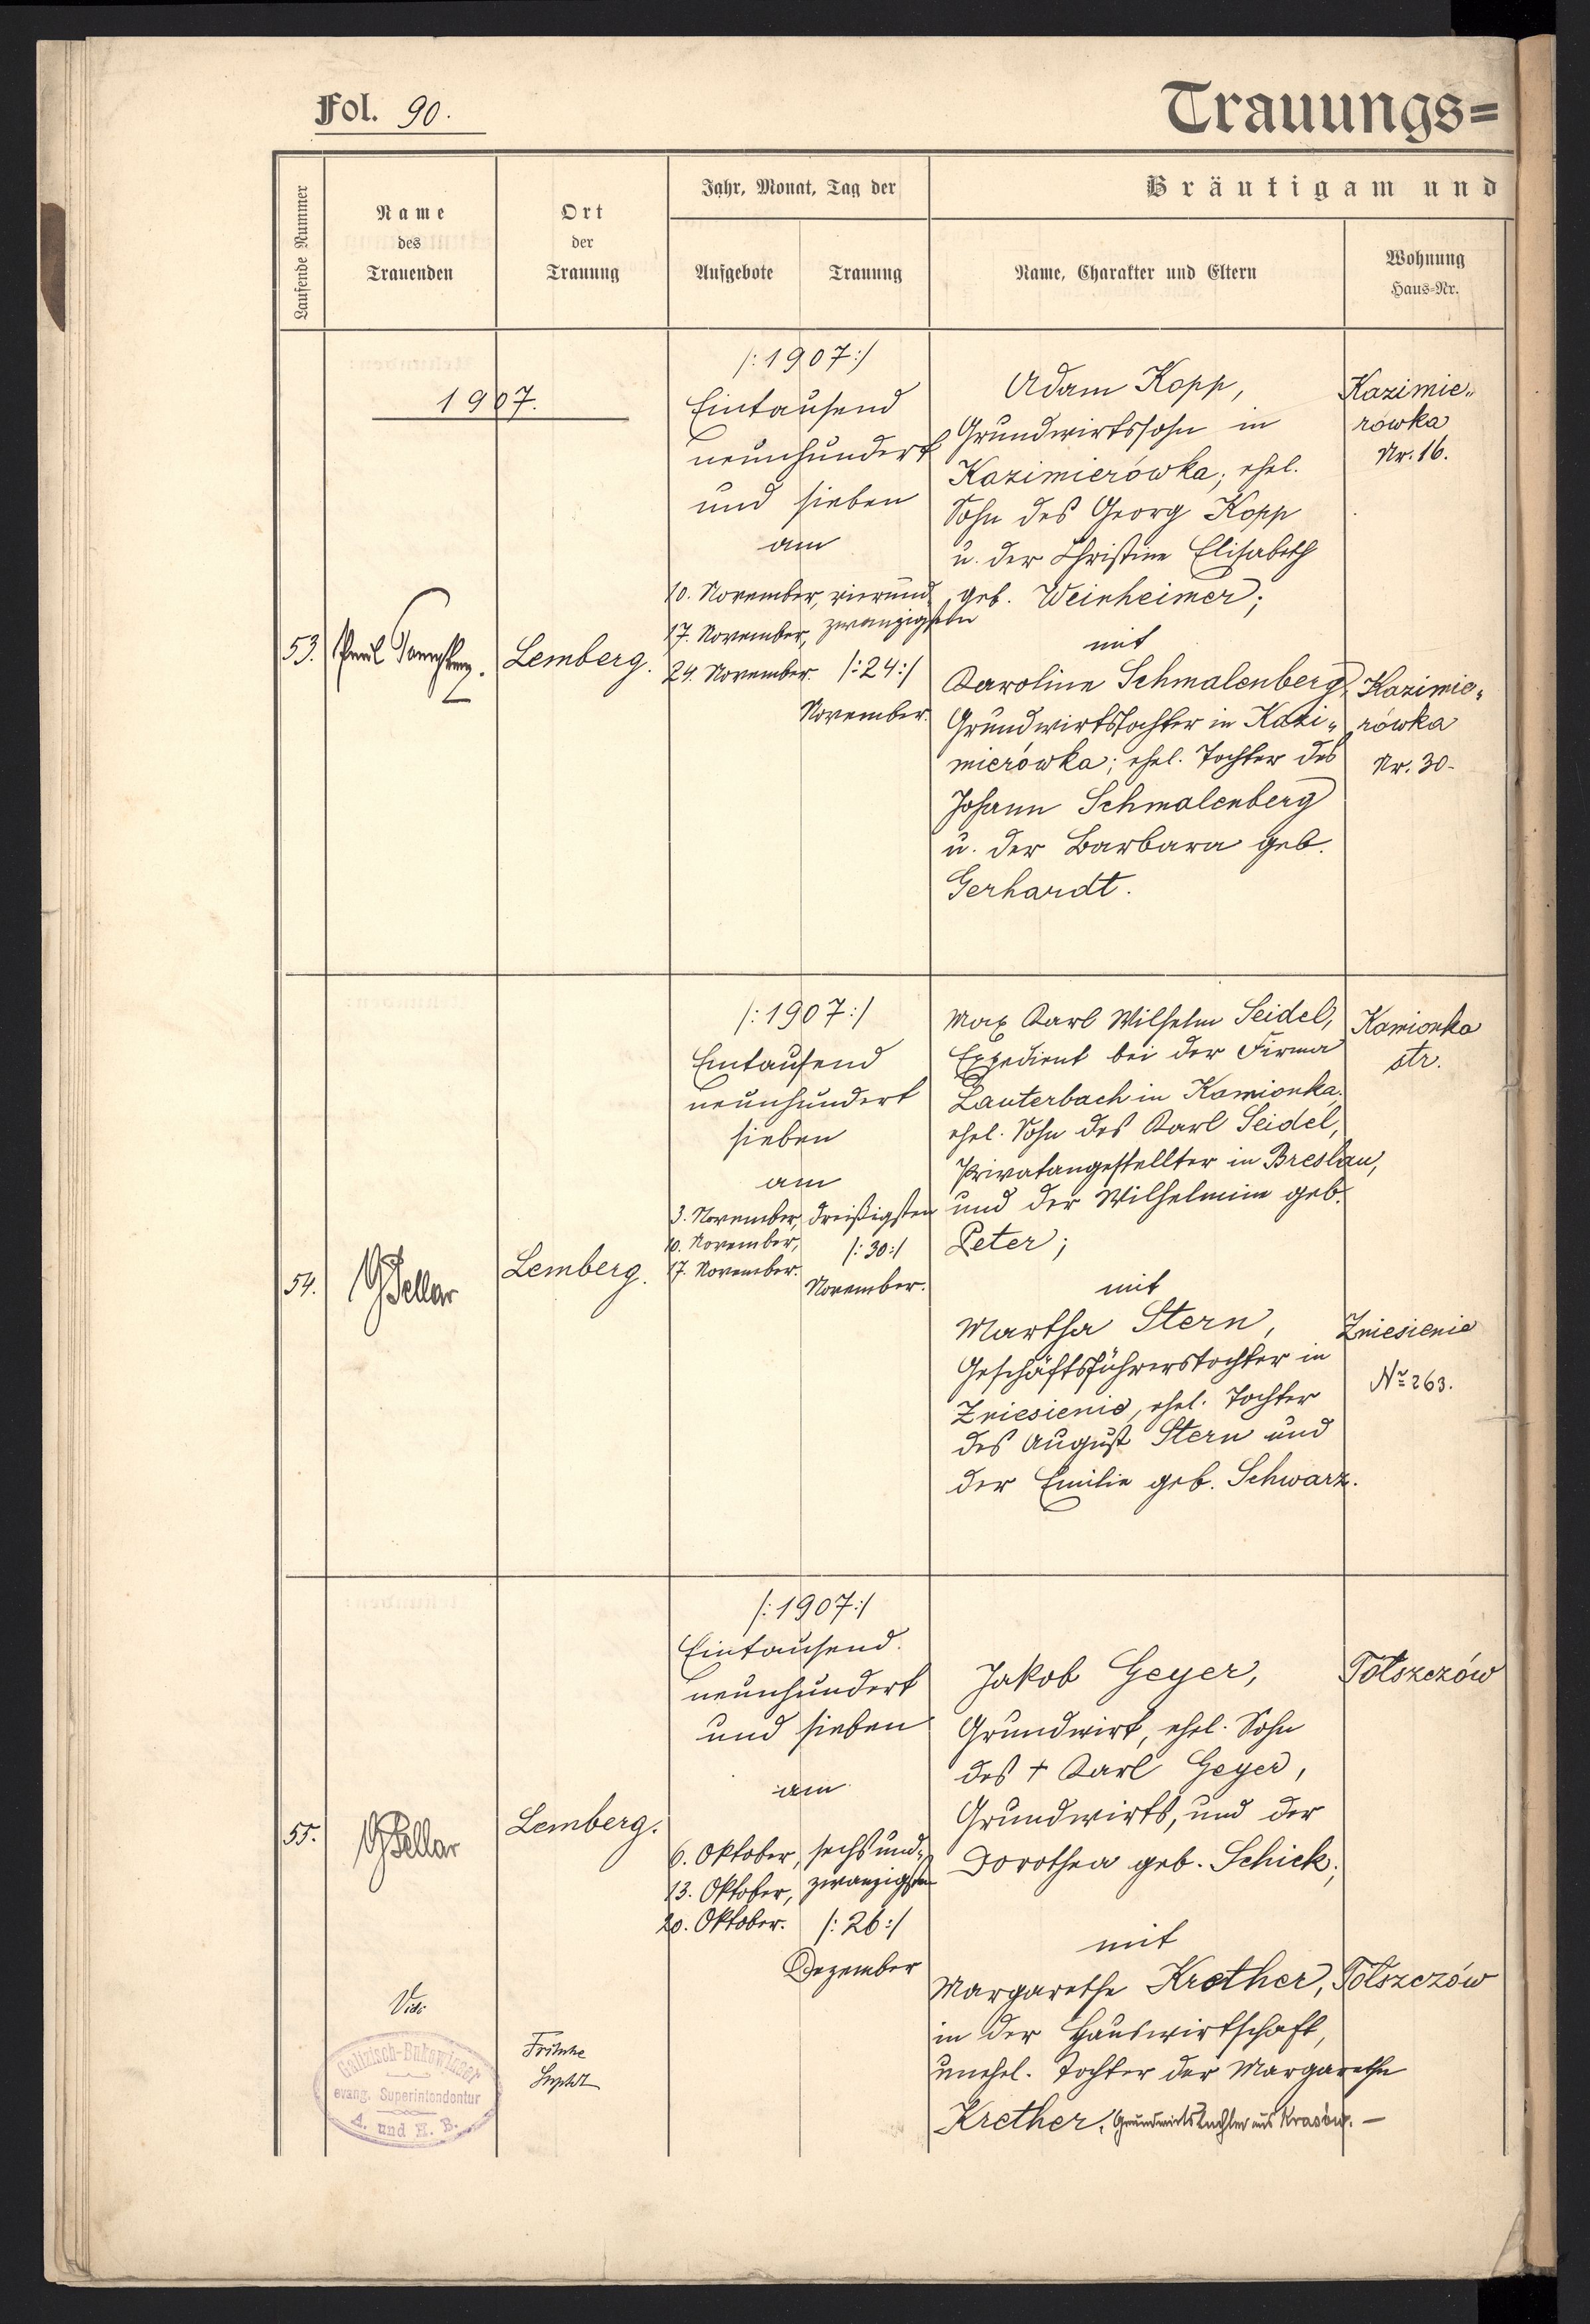 Fol. 90.
Trauungs=
Laufende Nummer
Name
des
Trauenden
Ort
der
Trauung
Jahr, Monat, Tag der
Aufgebote
Trauung
Bräutigam und
Name, Charakter und Eltern
Wohnung
Haus=Nr.
1907.
53.
Paul
Lemberg.
/:1907:/
Eintausend
neunhundert
und sieben
am
10. November,
17. November,
24. November.
vierund-
zwanzigsten
/:24:/
November.
Adam Kopp,
Grundwirtssohn in
Kazimierówka; ehel.
Sohn des Georg Kopp
u. der Christine Elisabeth
geb. Weinheimer;
mit
Karoline Schmalenberg,
Grundwirtstochter in Kazi-
mierówka; ehel. Tochter des
Johann Schmalenberg
u. der Barbara geb.
Gerhardt.
Kazimie-
rówka
Nr. 16.
Kazimie-
rówka
Nr. 30.
54.
Lemberg.
/:1907:/
Eintausend
neunhundert
sieben
am
3. November,
10. November,
17. November.
dreißigsten
/:30:/
November.
Max Karl Wilhelm Seidel,
Expedient bei der Firma
Lauterbach in Kamionka,
ehel. Sohn des Karl Seidel,
Privatangestellter in Breslau,
und der Wilhelmine geb.
Peter;
mit
Martha Stern,
Geschäftsführerstochter in
Zniesienie, ehel. Tochter
des August Stern und
der Emilie geb. Schwarz.
Kamionka
str.
Zniesienie
Nr 263.
55.
Lemberg.
/:1907:/
Eintausend
neunhundert
und sieben
am
6. Oktober,
13. Oktober,
20. Oktober.
sechsund-
zwanzigsten
/:26:/
Dezember
Jakob Geyer,
Grundwirt, ehel. Sohn
des † Karl Geyer,
Grundwirts, und der
Dorothea geb. Schick;
mit
Margarethe Krether,
in der Hauswirtschaft,
unehel. Tochter der Margarethe
Krether, Grundwirtstochter aus Krasów. —
Tołszczów
Tołszczów
Vidi
Fritsche
Supdt
Galizisch-Bukowinaer
evang. Superintendentur
A. und H. B.